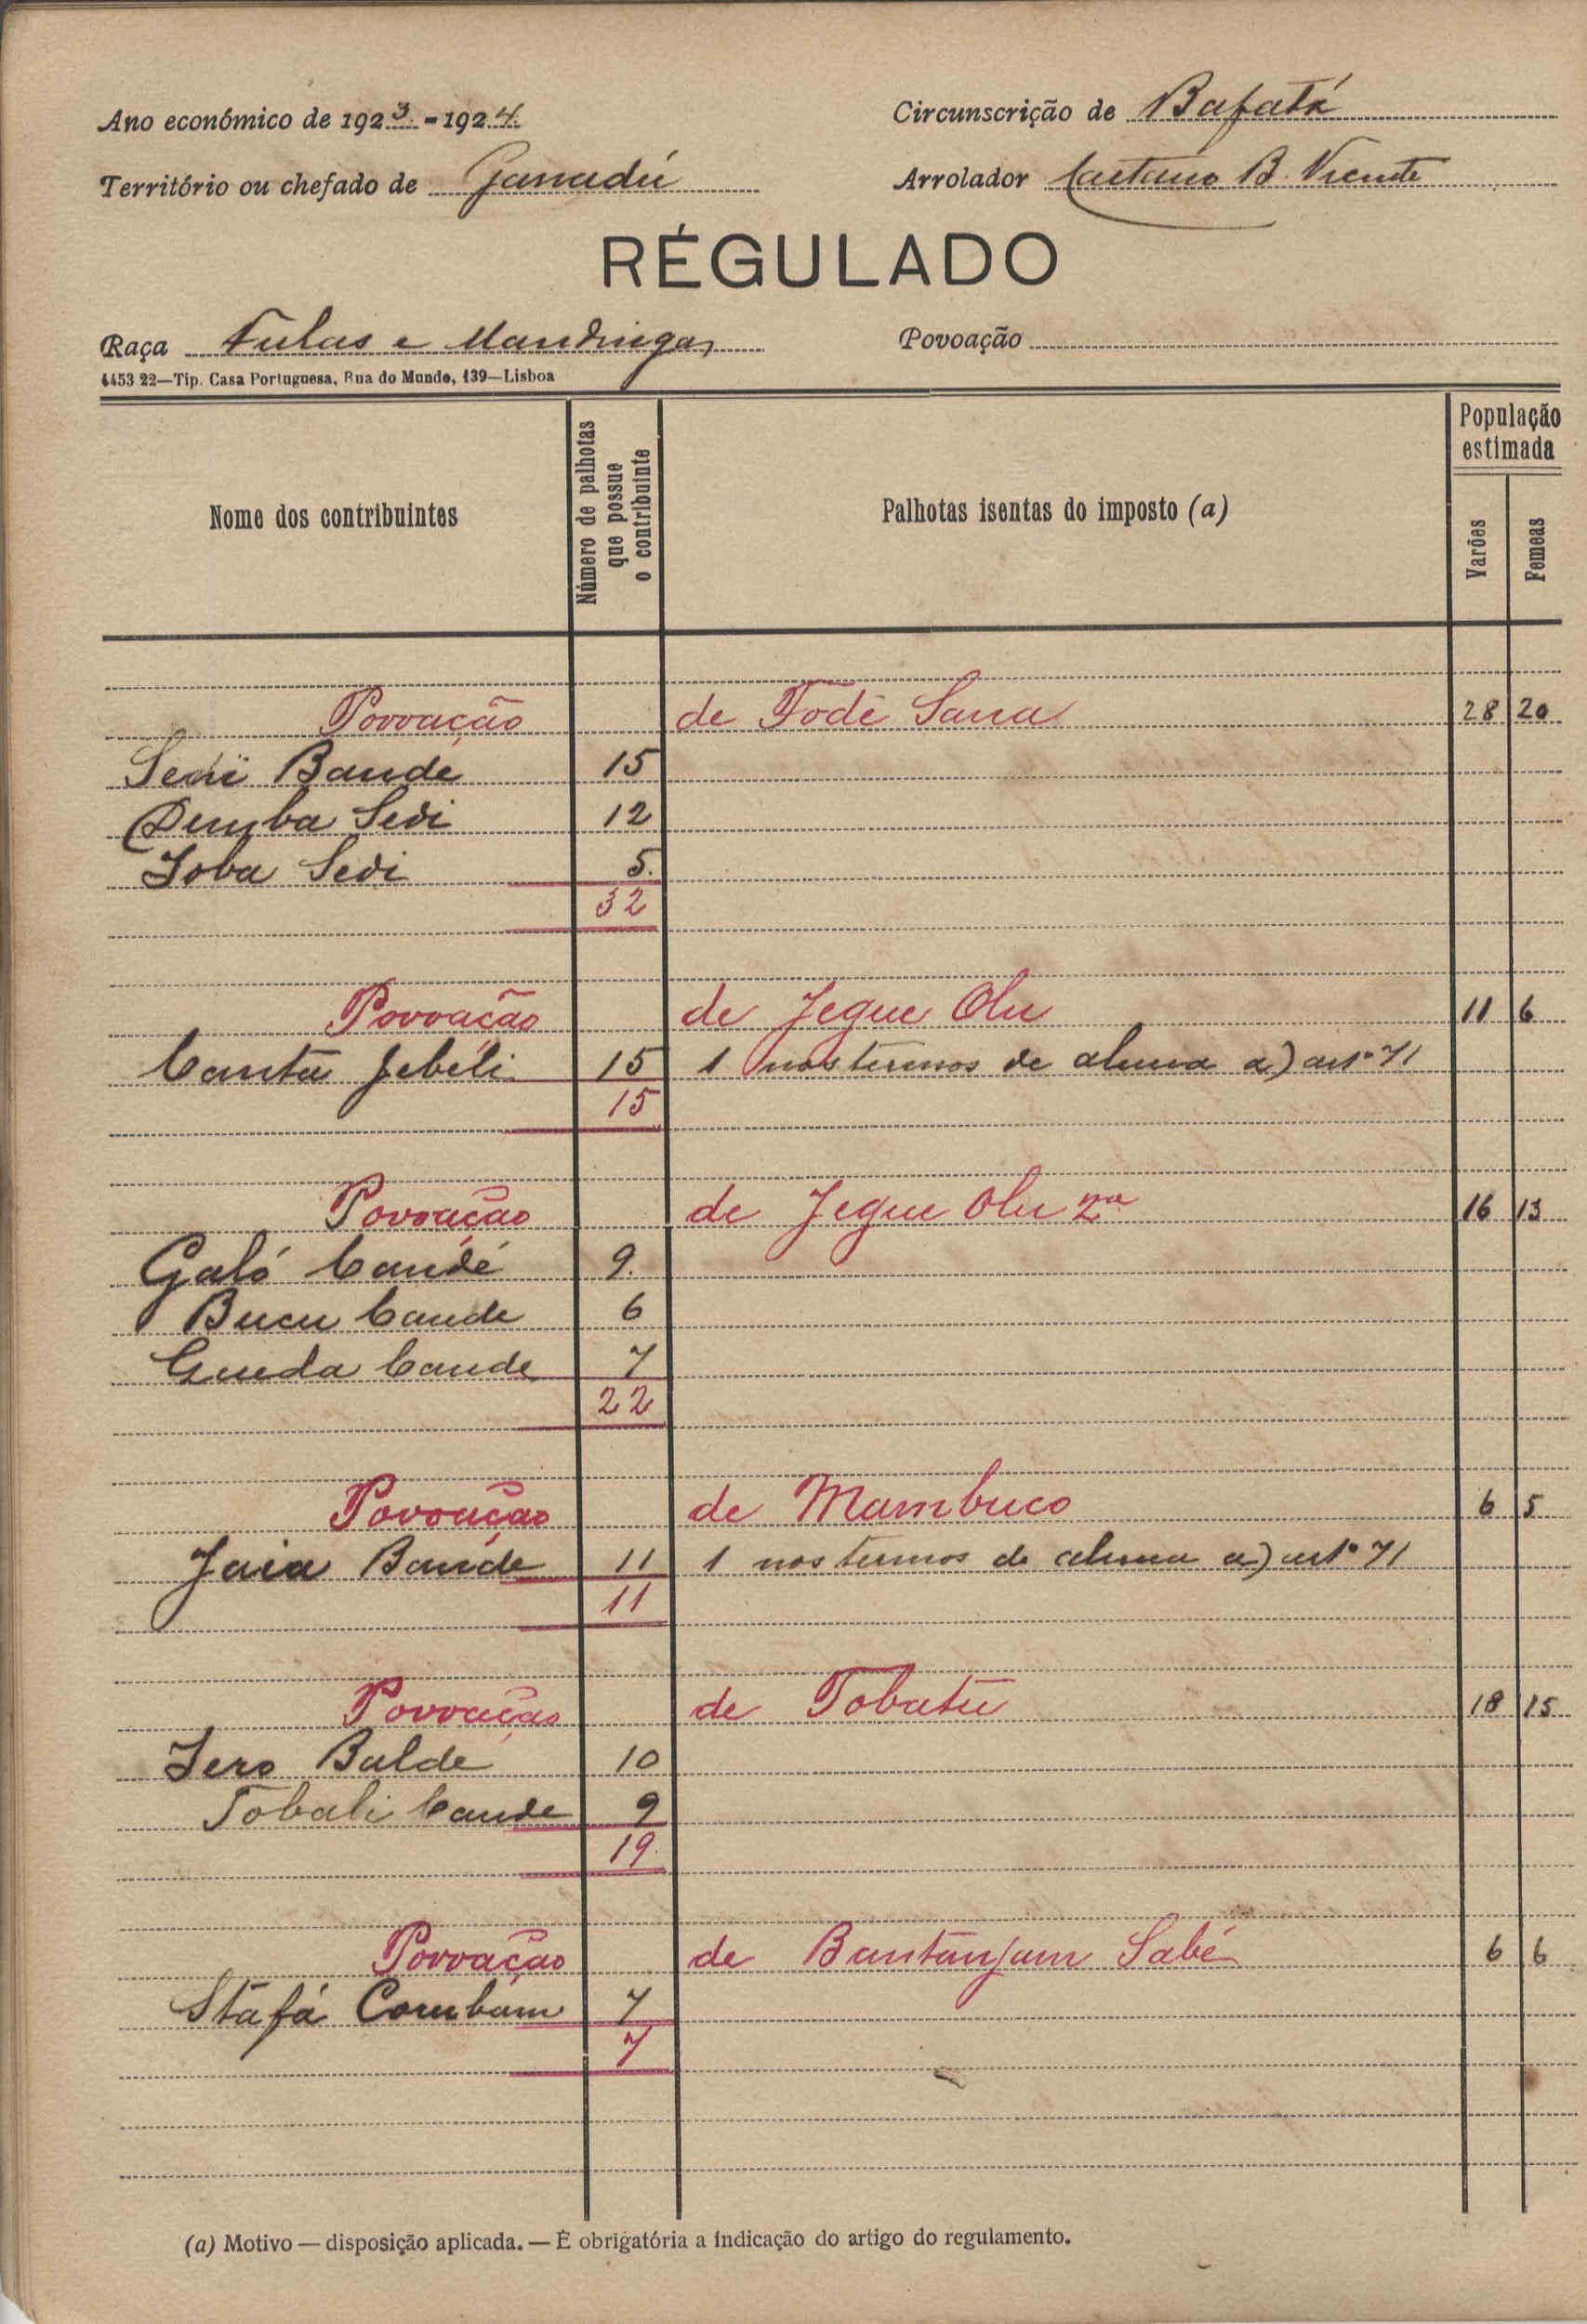 Ano económico de 1923-1924. Circunscrição de Bafatá
Território ou chefado de Ganadú Arrolador Caetano B. Vicente
RÉGULADO
Raça Fulas e Mandingas Povoação
4453 22—Tip. Casa Portuguesa, Rua do Mundo, 139—Lisboa
Nome dos contribuintes
Número de palhotas que possue o contribuinte
Palhotas isentas do imposto (a)
População estimada
Varões
Femeas
Povoação de Fodé Sana 28 20
Bande 15
Demba Sedi 12
Joba Sedi 5.
32
Povoação de Jegue Olu 11 6
Canta Jebéli 15 1 nos termos de alinea a) artº 71
15
Povoação de Jegue Olu 2ª 16 13
Galó Candé 9.
Bucu Cande 6
Gueda Cande 7
22
Povoação de Mambuco 6 5
Jaia Bande 11 1 nos termos de alinea a) artº 71
11
Povoação de Tobatu 18 15
Jero Balde 10
Tobali Cande 9
19.
Povoação de Bantanjam Sabé 6 6
Stafá Combam 7
7
(a) Motivo — disposição aplicada. — É obrigatória a indicação do artigo do regulamento.